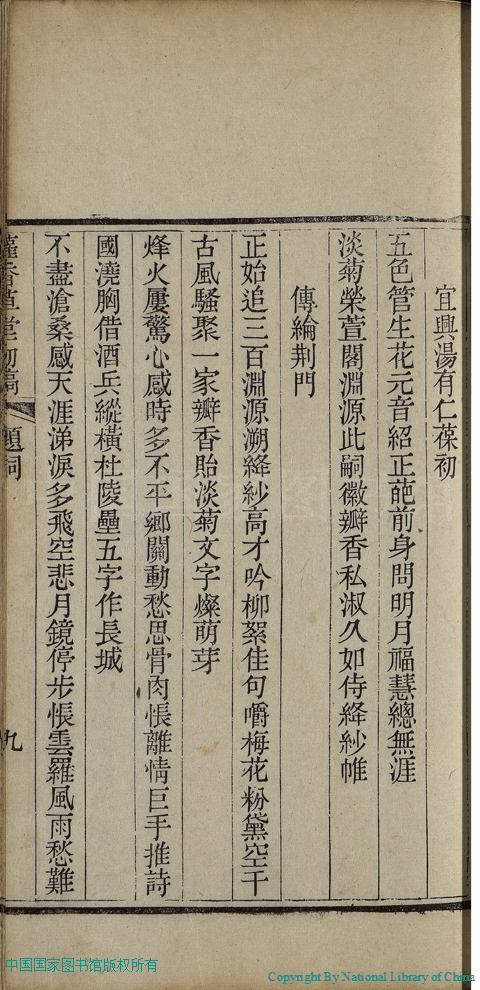 宜興湯有仁葆初
五色管生花元音紹正葩前身問明月福慧總無涯
淡菊榮萱閣淵源此嗣徽瓣香私淑久如侍絳紗帷
傳綸荆門
正始追三百淵源溯絳紗高才吟柳絮佳句嚼梅花粉黛空千
古風騷聚一家瓣香貽淡菊文字燦萌芽
烽火屢驚心感時多不平鄉關動愁思骨肉悵離情巨手推詩
國澆胸借酒兵縱橫杜陵壘五字作長城
不盡滄桑感天涯涕淚多飛空悲月鏡停步悵雲羅風雨愁難
香草堂初稿 題詞 九
中国国家图书馆版权所有
Copyright By National Library of China